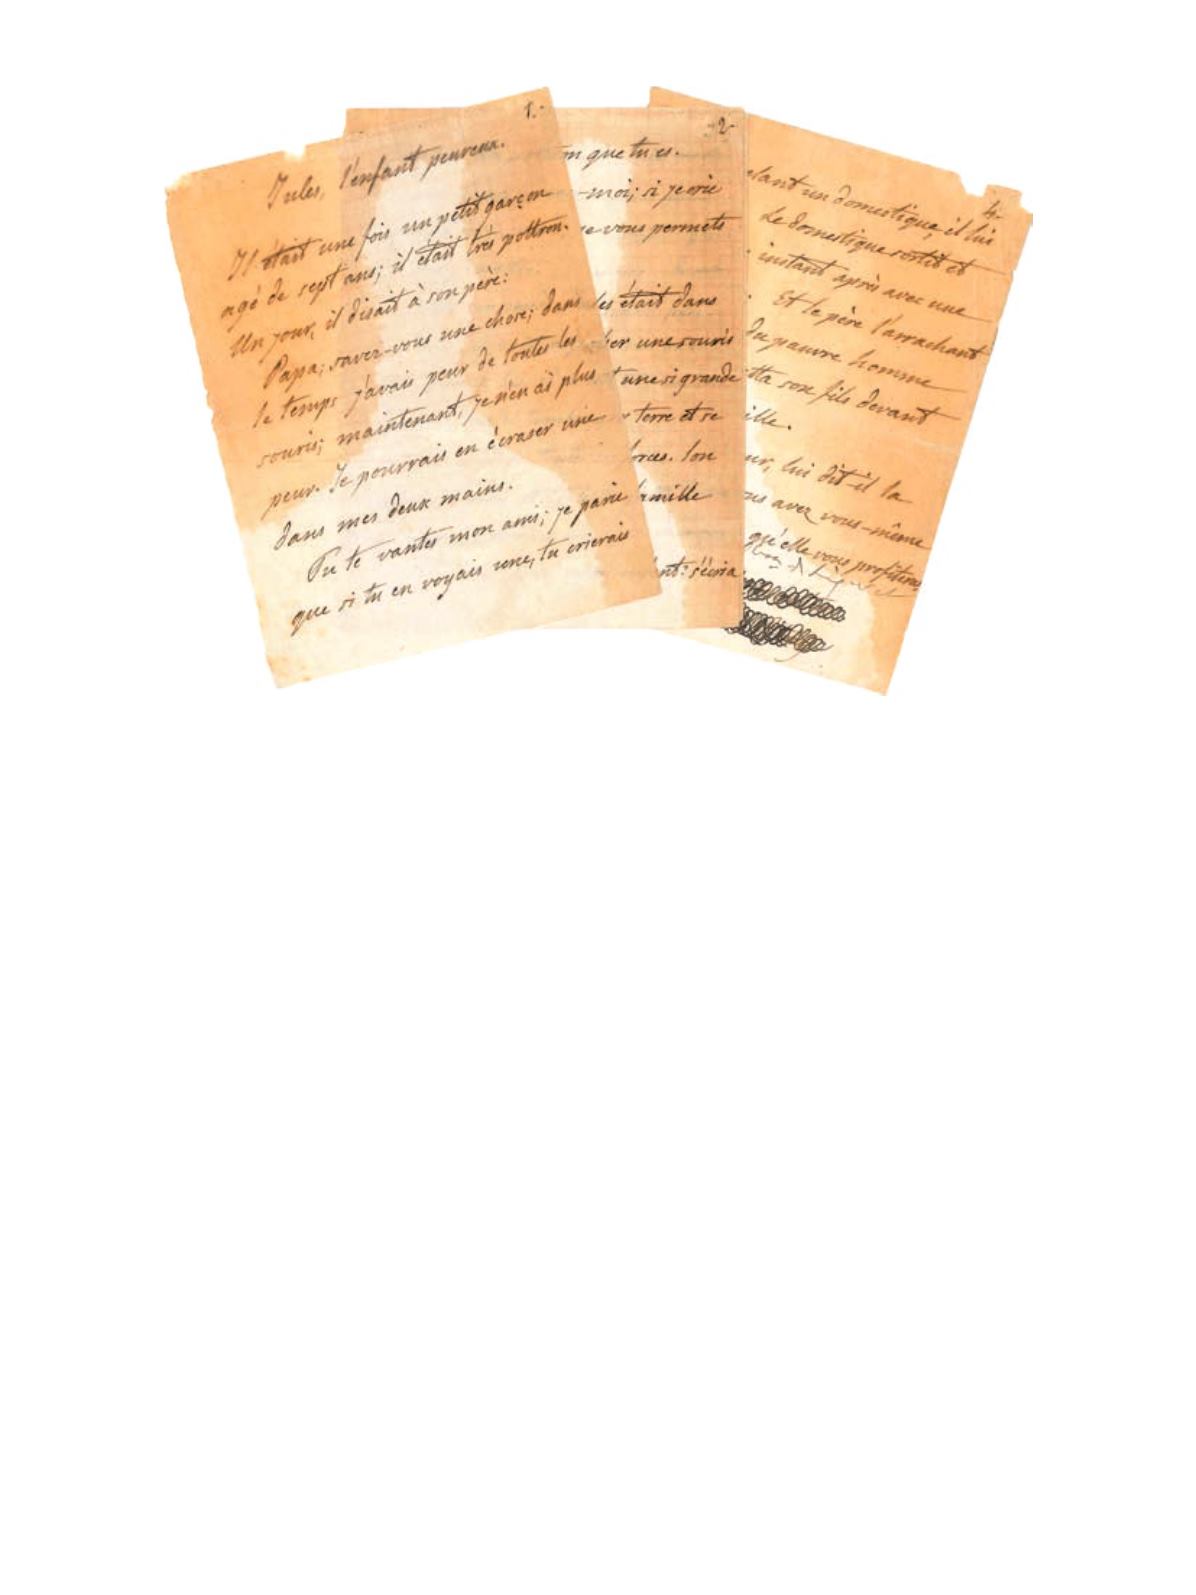 1.-
Jules, l'enfant peureux.
Il était une fois un petit garçon
agé de sept ans; il était très poltron.
Un jour, il disait à son père:
Papa; savez-vous une chose; dans
le temps j'avais peur de toutes les
souris; maintenant, je n'en ai plus
peur. Je pourrais en écraser une
dans mes deux mains.
Tu te vantes mon ami; je parie
que si tu en voyais une, tu crierais
2-
n que tu es.
-moi; si je crie
e vous permets
les était dans
er une souris
t une si grande
terre et se
forces. Son
famille
nt: s'écria
4.-
elant un domestique, il lui
Le domestique sortit et
instant après avec une
Et le père l'arrachant
du pauvre homme
tta son fils devant
ille.
eur, lui dit-il la
ous avez vous-même
qu'elle vous profitera